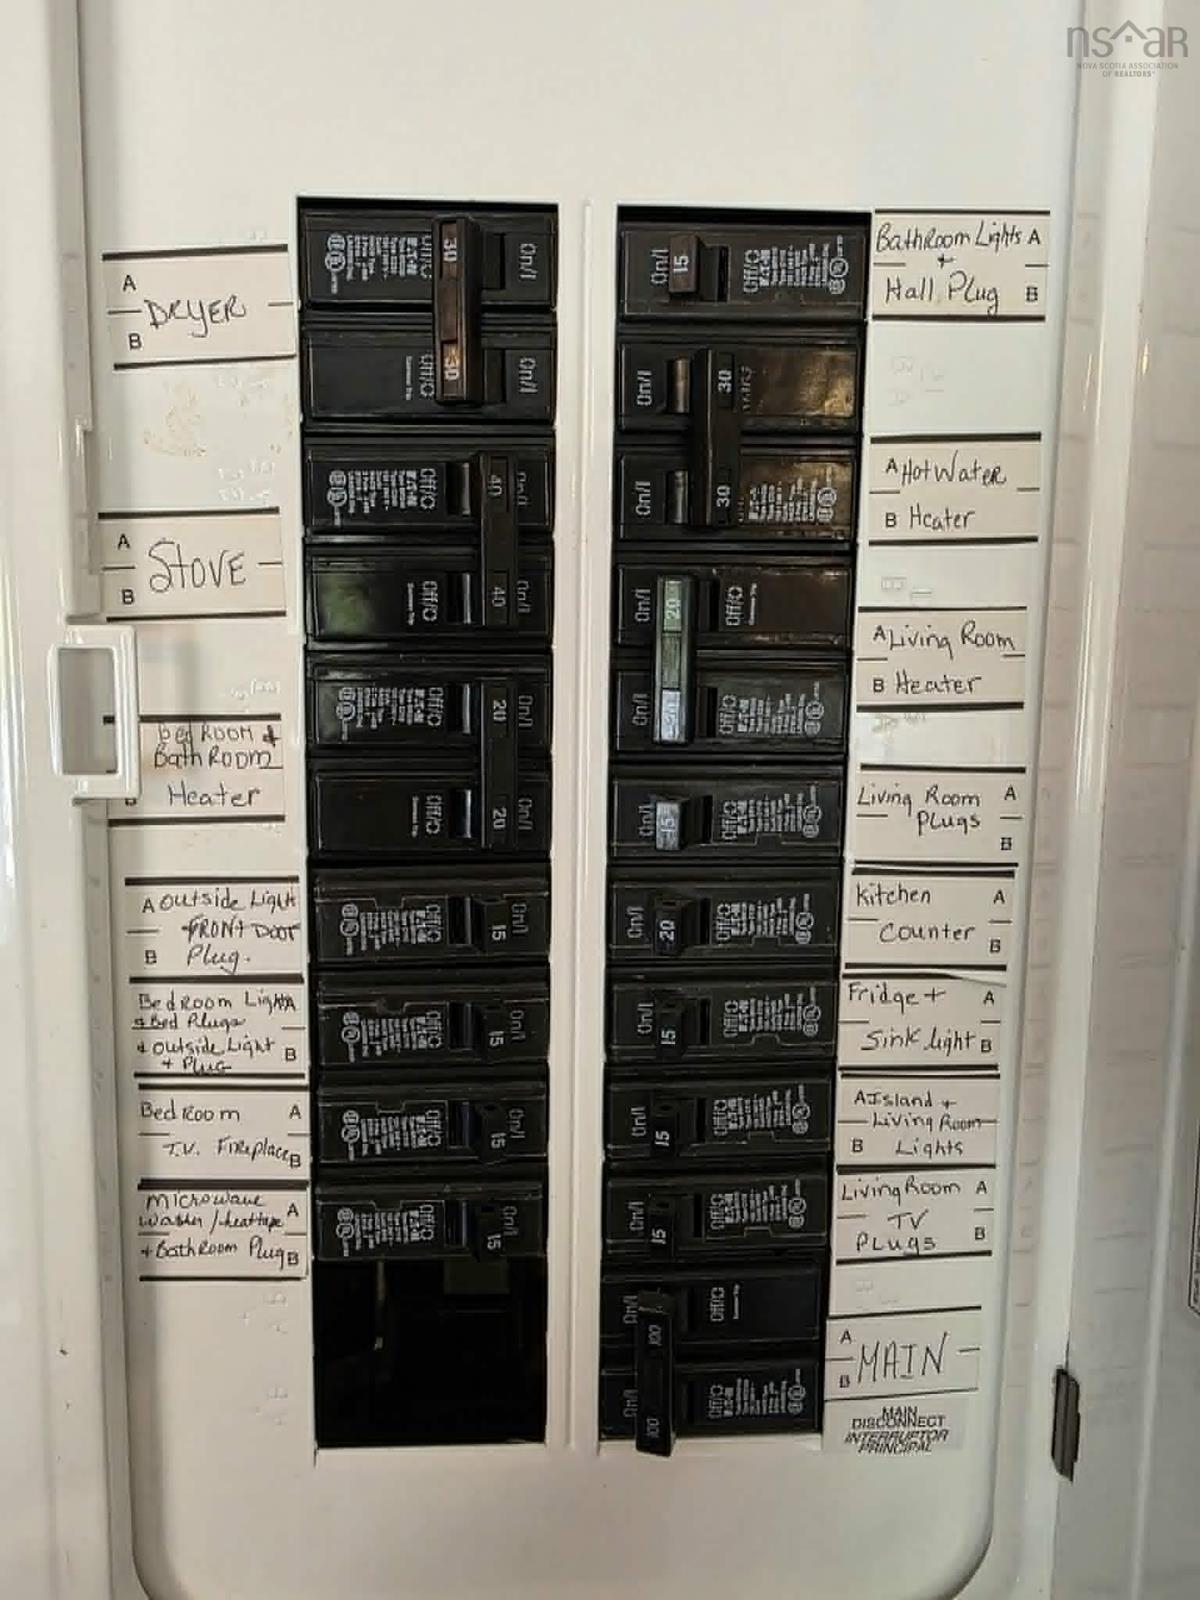 nsar
NOVA SCOTIA ASSOCIATION
OF REALTORS®
A
DRYER
B
A
STOVE
B
BedRoom &
BathRoom
Heater
B
A Outside Light
+ FRONT DOOR
B Plug.
BedRoom Lights A
+ Bed Plugs
+ Outside Light B
+ Plug
BedRoom A
T.V. Fireplace B
Microwave A
Washer/heattape
+ BathRoom Plug B
30 On/I
Off/O
30 On/I
Off/O
40 On/I
Off/O
40 On/I
Off/O
20 On/I
Off/O
20 On/I
Off/O
15 On/I
Off/O
15 On/I
Off/O
15 On/I
Off/O
15 On/I
Off/O
On/I 15 Off/O
On/I 30
On/I 30
On/I 20 Off/O
On/I 20 Off/O
On/I 15 Off/O
On/I 20 Off/O
On/I 15 Off/O
On/I 15 Off/O
On/I 15 Off/O
On/I 100 Off/O
On/I 100 Off/O
BathRoom Lights A
+
Hall Plug B
A Hot Water
B Heater
A Living Room
B Heater
Living Room A
Plugs
B
Kitchen A
Counter B
Fridge + A
Sink light B
A Island +
Living Room
B Lights
Living Room A
TV
Plugs B
A
MAIN
B
MAIN
DISCONNECT
INTERRUPTOR
PRINCIPAL